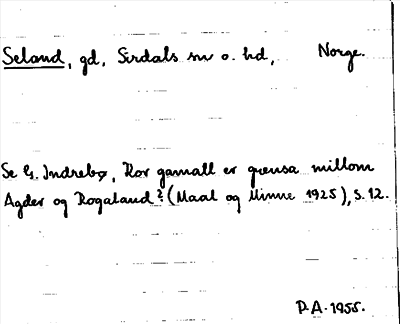 Seland, gd, Sirdals sn o. hd, Norge.
Se G. Indrebø, Kor gamall er grensa millom
Agder og Rogaland? (Maal og Minne 1925), s. 12.
P.A. 1955.